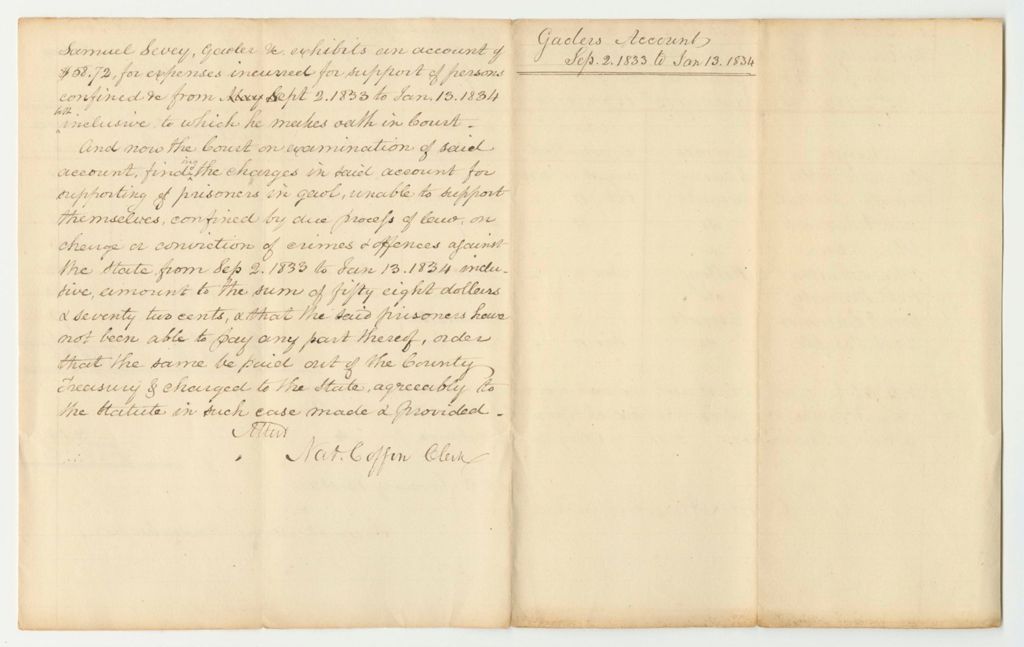 Samuel Sevey, Gaoler &c exhibits an account of
$58.72, for expenses incurred for support of persons
confined &c from May Sept 2. 1833 to Jan. 13. 1834
both
inclusive to which he makes oath in Court.
And now the Court on examination of said
account, finding the charges in said account for
supporting of prisoners in gaol, unable to support
themselves, confined by due process of law, on
charge or conviction of crimes & offences against
the State from Sep 2. 1833 to Jan 13. 1834 inclu-
sive, amount to the sum of fifty eight dollars
& seventy two cents, & that the said prisoners have
not been able to pay any part thereof, order
that the same be paid out of the County
Treasury & charged to the State, agreeably to
the Statute in such case made & provided.
Attest
Nat. Coffin Clerk
Gaolers Account
Sep. 2. 1833 to Jan 13. 1834